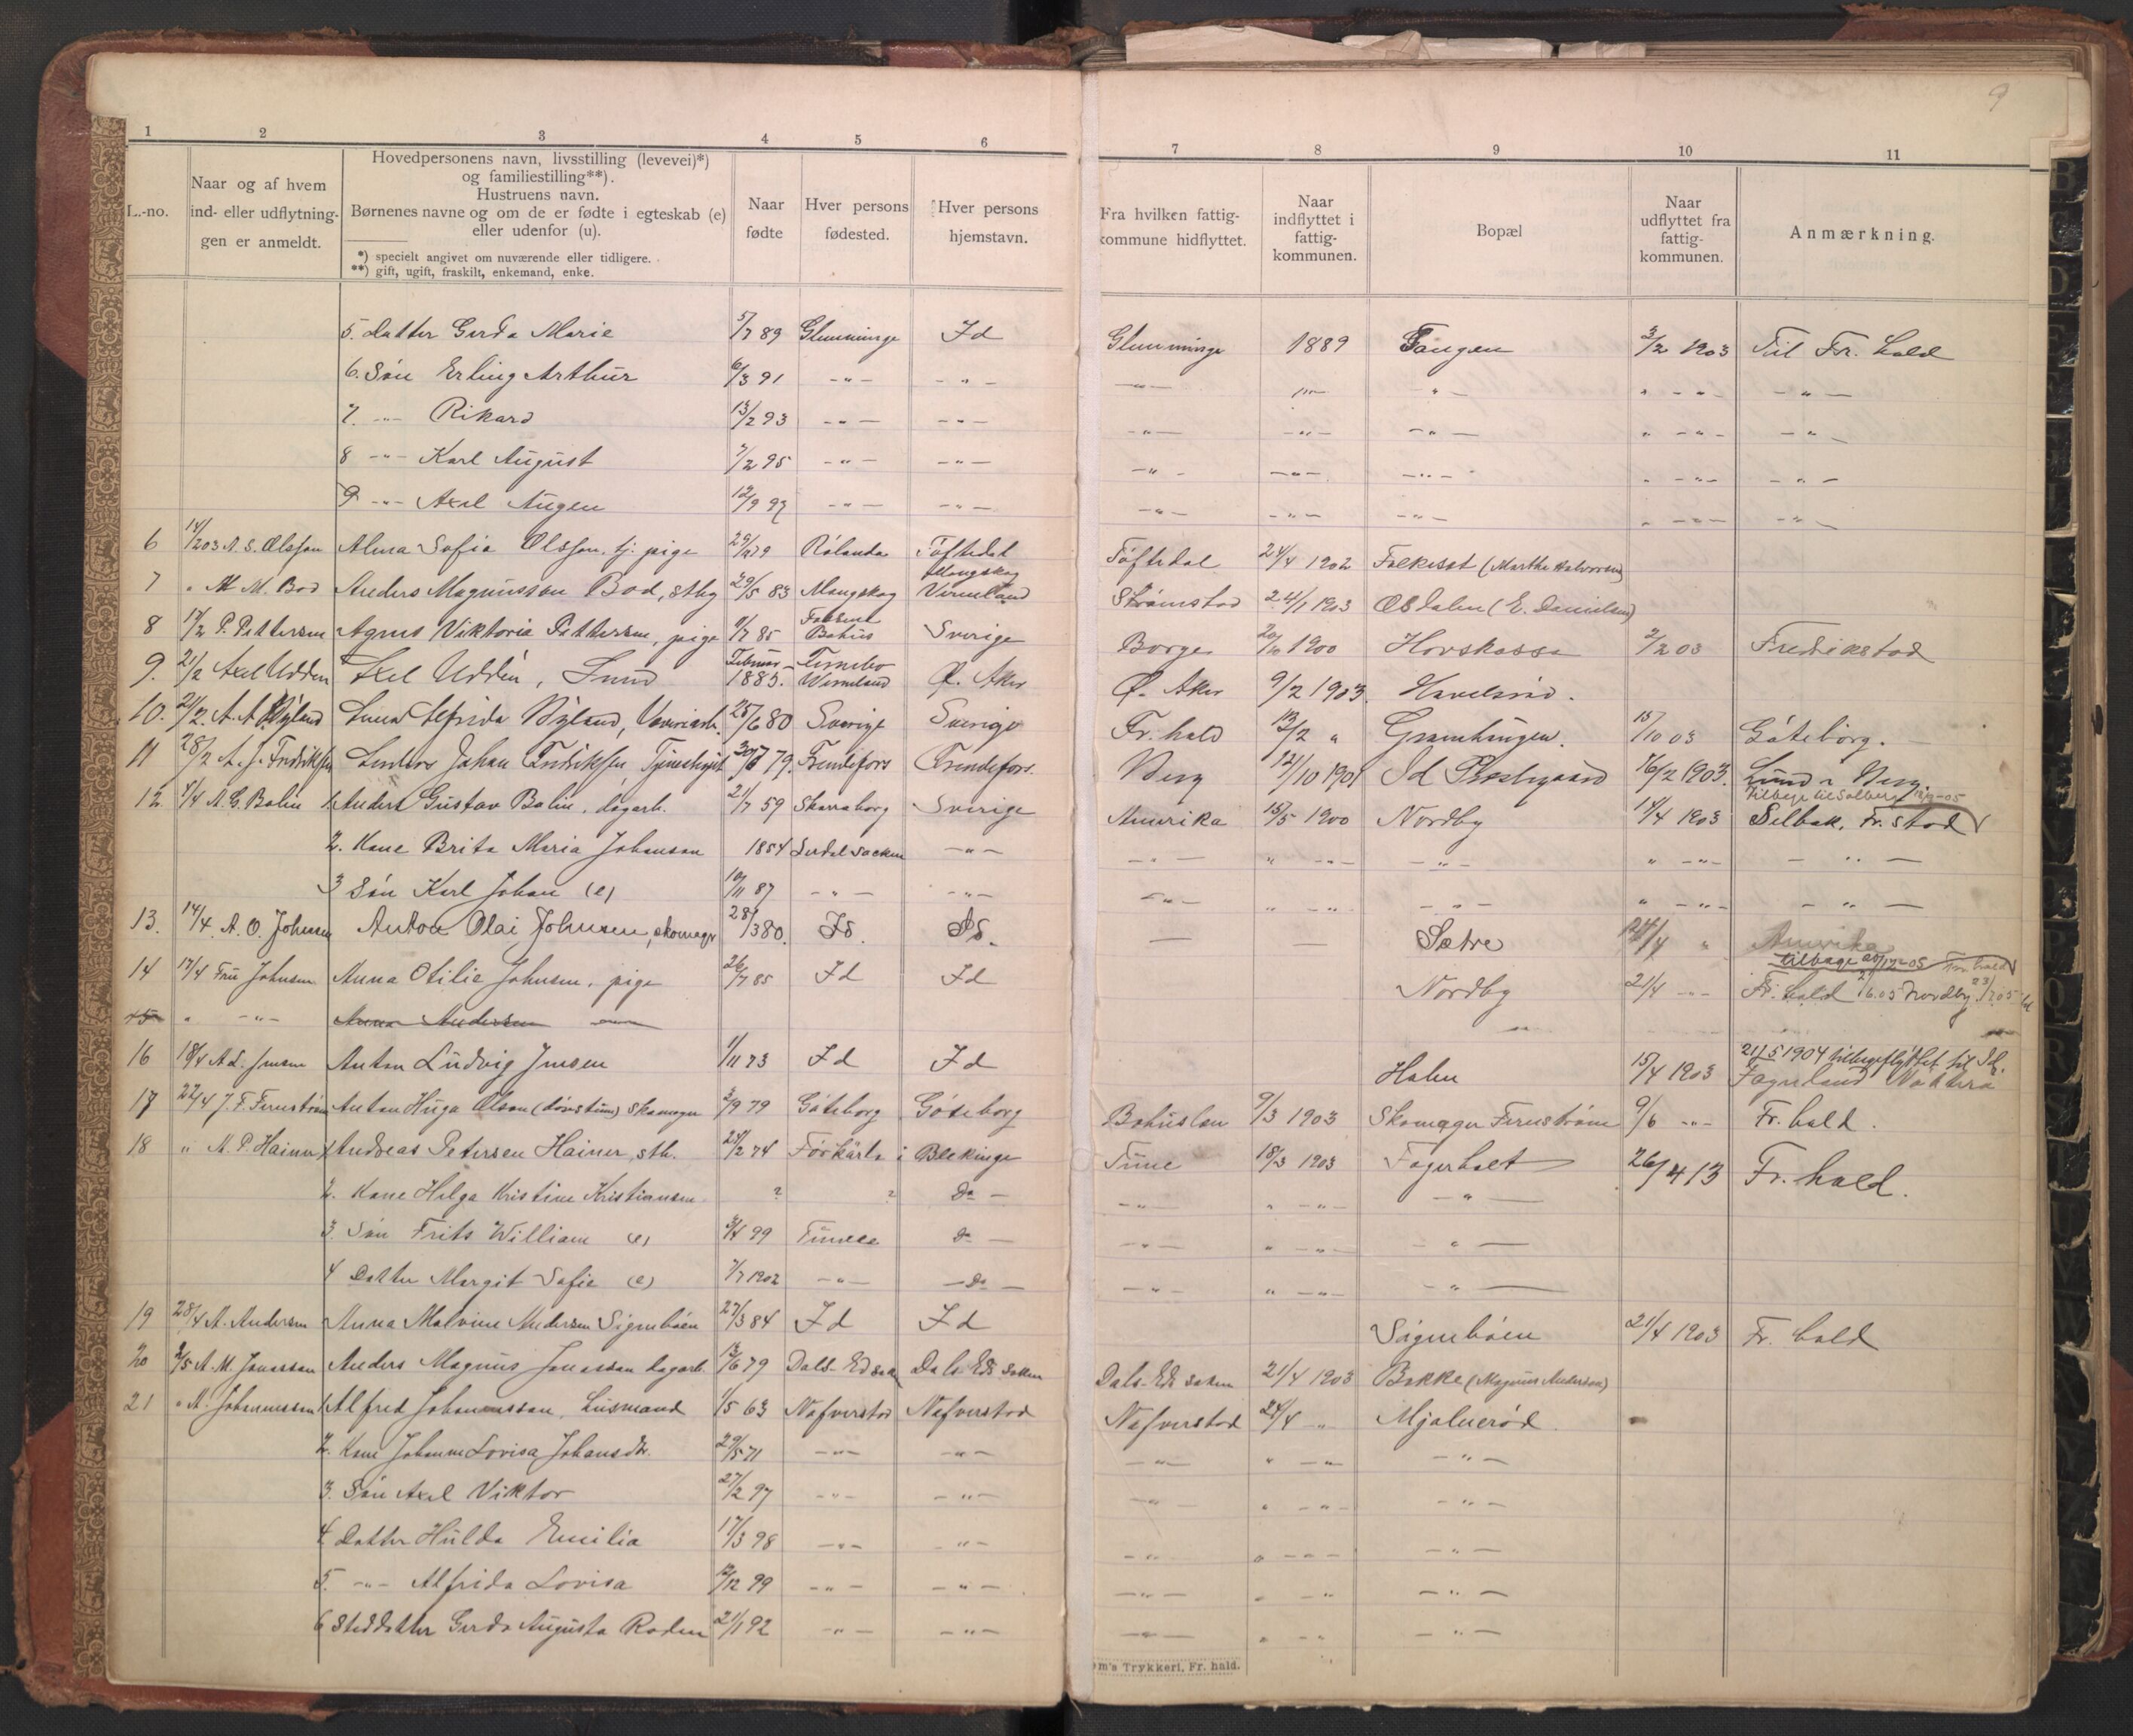 9
1 2 3 4 5 6 7 8 9 10 11
L.-no.
Naar og af hvem
ind- eller udflytnin-
gen er anmeldt.
Hovedpersonens navn, livsstilling (levevei)*)
og familiestilling**).
Hustruens navn.
Børnenes navne og om de er fødte i egteskab (e)
eller udenfor (u).
*) specielt angivet om nuværende eller tidligere.
**) gift, ugift, fraskilt, enkemand, enke.
Naar
fødte
Hver persons
fødested.
Hver persons
hjemstavn.
Fra hvilken fattig-
kommune hidflyttet.
Naar
indflyttet i
fattig-
kommunen.
Bopæl
Naar
udflyttet fra
fattig-
kommunen.
Anmærkning.
5. Datter Gerda Marie 5/7 89 Glumminge Id Glumminge 1889 Tangen 3/2 1903 Til Fr. hald
6. Søn Erling Arthur 6/3 91 -"- -"- -"- -"- -"- " -"- -"-
7. -"- Rikard 13/2 93 -"- -"- -"- -"- -"- " -"- -"-
8 -"- Karl August 7/2 95 -"- -"- -"- -"- -"- " -"- -"-
9 -"- Axel Augen 12/9 97 -"- -"- -"- -"- -"- " -"- -"-
6 14/2 03 A. S. Olsson Alma Sofia Olsson, tj. pige 29/ 79 Rölanda Töftedal Töftedal 24/4 1902 Folkesat (Marthe Halvorsen)
7 " A. M. Bod Anders Magnusson Bod, sthg 29/5 83 Mangskog Mangskog Vermland Strømstad 24/1 1903 Ødalen (E. Danielsen)
8 17/2 P. Pettersen Agnes Viktoria Pettersen, pige 9/7 85 Bohus Sverige Borge 20/10 1900 Hovskassa 2/2 03 Fredrikstad
9. 21/2 Axel Udden Axel Uddén, Smed Februar 1883. Wermland Ø. Aker Ø. Aker 9/2 1903 Havelsrød.
10. 24/2. A. A. Nyland Anna Alfrida Nyland, Væveriarb. 25/6 80 Sverige Sverige Fr. hald 13/2 " Gramhungen. 15/10 03 Göteborg.
11 28/2 A. J. Fredriksen Anders Johan Fredriksen Tjenestegut 30/7 79. Frendefors Frendefors. Berg 12/10 1901 Id Prestegaard 16/2 1903. Lund i Berg.
12 4/4 A. G. Balin 1. Anders Gustav Balin, dagarb. 21/7 59 Skaraborg Sverige Amerika 15/5 1900 Nordby 14/4 1903 Tilbage til Solberg 12/2-05 Selbak, Fr. stad
2. Kone Brita Maria Johanson 1854 Lerdal Socken -"- -"- " -"- -"- " -"- -"-
3 Søn Karl Johan (e) 10/11 87 -"- -"- -"- " -"- -"- " -"- -"-
13. 14/4. A. O. Johnsen Anton Olai Johnsen, skomager 28/3 80. Id. Id. — — Sætre 24/4 " Amerika
tilbage 20/12-05 Fr. hald
14 17/4 Fru Johnsen Anna Otilie Johnsen, pige 26/7 85 Id Id Nordby 21/4 -"- Fr. hald 2/6.05 Nordby 23/7 05
15 " -"- Anna Andersen
16 18/4 A L. Jensen Anton Ludvig Jensen 1/11 73 Id Id Holm 15/4 1903 21/5 1904 tilbageflyttet til Id.
Fagerland
17 22/4 J. F. Fernström Anton Hugo Olson (døvstum) Skomager 3/9 79 Göteborg Göteborg Bohuslen 9/3 1903 Skomager Fernstrøm 9/6 -"- Fr. hald.
18 " A. P. Hainer 1 Andreas Petersen Hainer, sth. 24/2 74 Förkärla i Blekinge Tune 18/3 1903 Fagerholt 26/4 13 Fr. hald.
2. Kone Helga Kristine Kristiansen ? ? Do - -"- " -"- -"-
3. Søn Frits William (e) 3/4 99 Tune Do - -"- " -"- -"-
4 Datter Margit Sofie (e) 7/7 1902 -"- - Do - -"- " -"- -"-
19 28/4 A. Andersen Anna Malvine Andersen Signebøen 27/3 84 Id Id Signebøen 21/4 1903 Fr. hald
20 2/5 A. M. Jonasson Anders Magnus Jonasson dagarb. 12/6 79 Dals Ed Sokn Dals Eds Soken Dals-Eds Soken 21/4 1903 Bakke (Magnus Anderson)
21 " A. Johannesson 1 Alfred Johannesson, Leismand 1/5 63 Nafverstad Nafverstad Nafverstad 24/4 " Mjølnerød.
2. Kone Johanne Lovisa Johansdr. 29/5 71 -"- -"- -"- " -"- -"-
3. Søn Axel Viktor 27/2 97 -"- -"- -"- " -"- -"-
4 Datter Hulda Emilia 17/3 98 -"- -"- -"- " -"- -"-
5. -"- Alfrida Lovisa 12/12 99 -"- -"- -"- " -"- -"-
6 Steddatter Gerda Augusta Roden 21/1 92 -"- -"- -"- " -"- -"-
m's Trykkeri, Fr. hald.